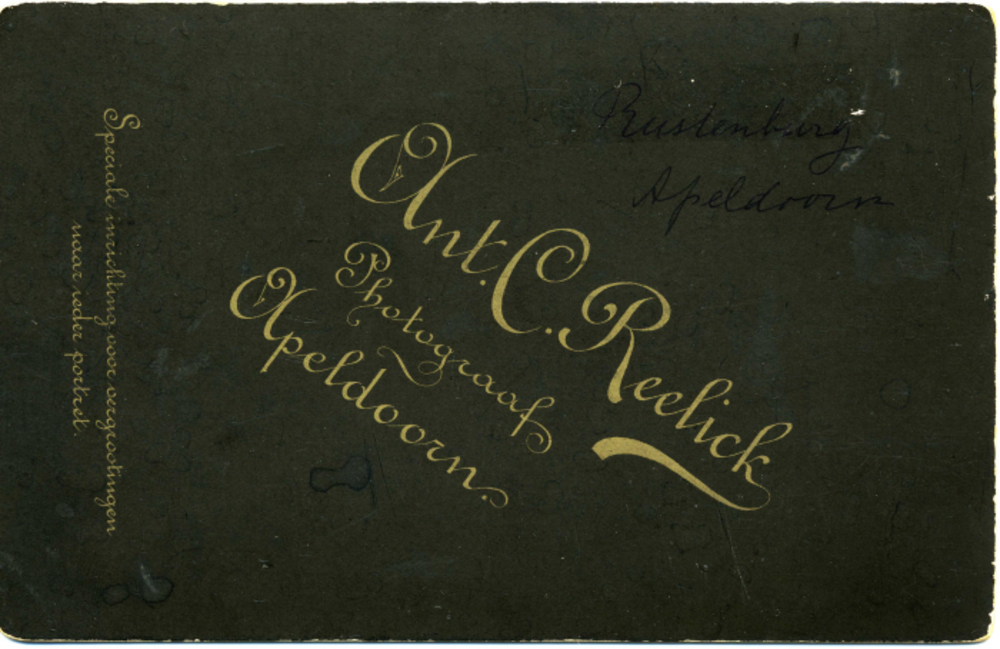 Rustenburg
Apeldoorn
Ant. C. Reelick
Photograaf
Apeldoorn.
Speciale inrichting voor vergrootingen
naar ieder portret.